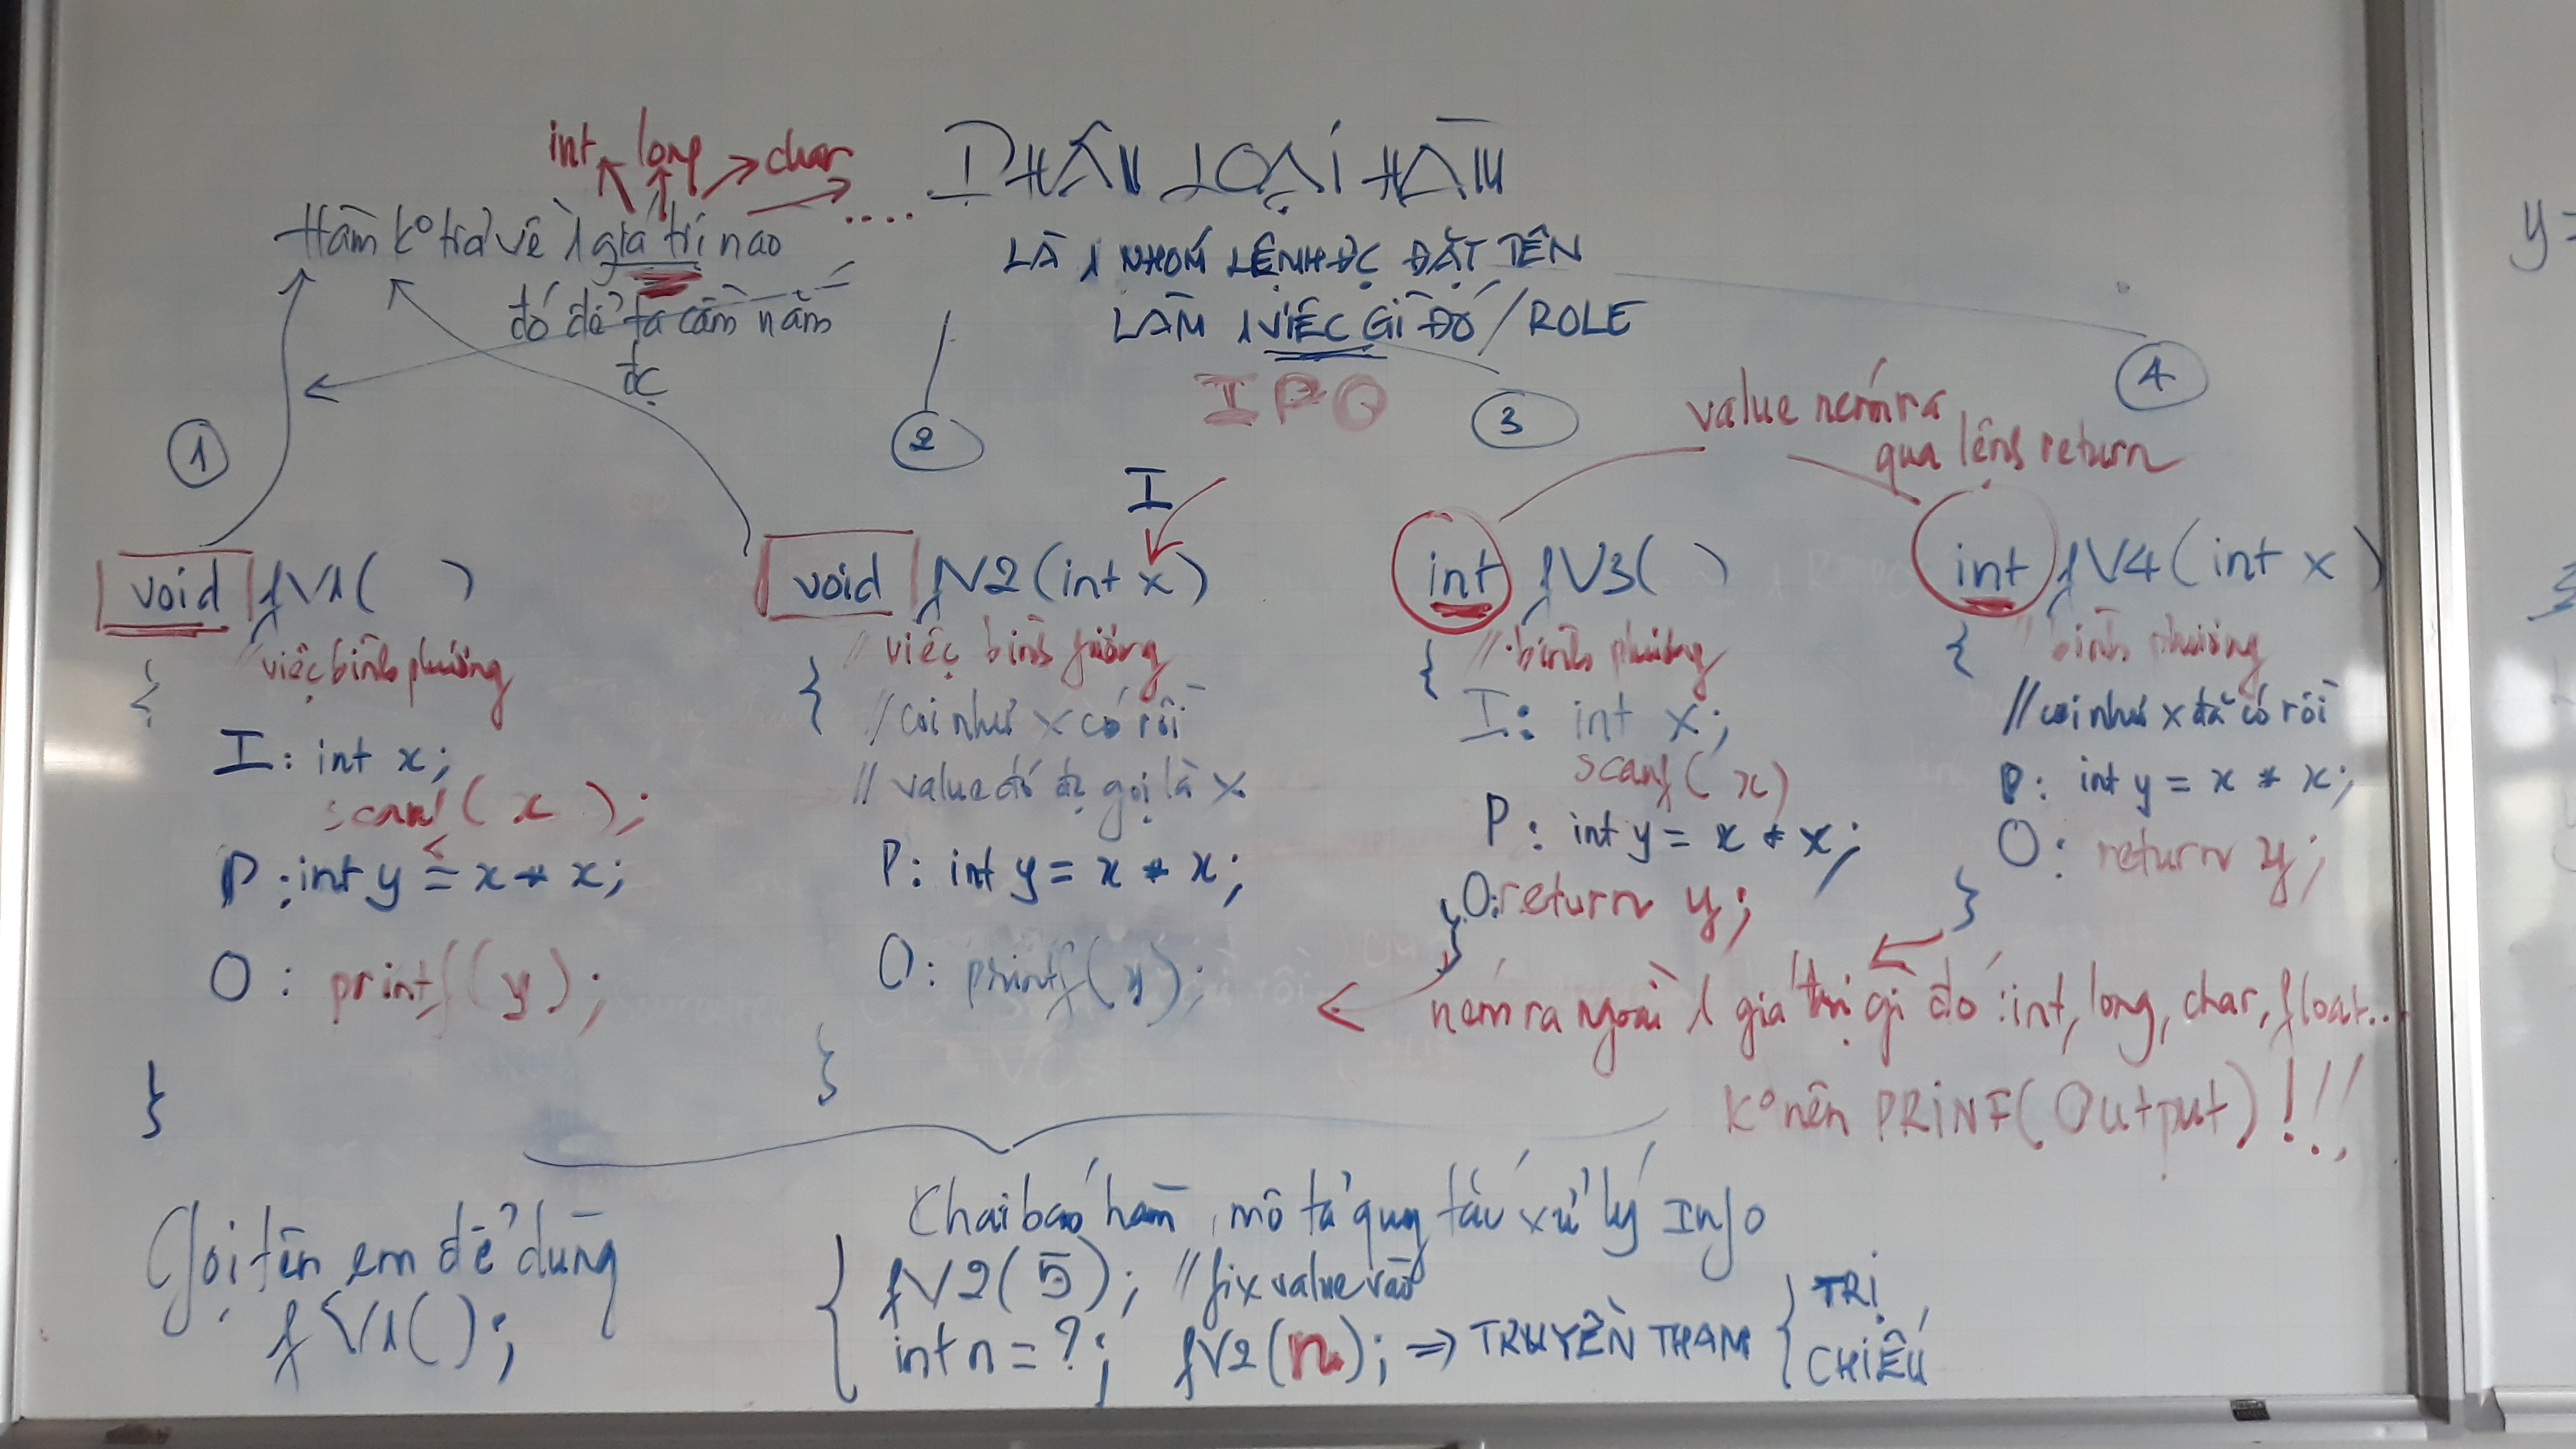 PHÂN LOẠI HÀM
int long char
....
Hàm kº trả về 1 giá trị nào
đó để ta cầm nắm
đc
LÀ 1 NHÓM LỆNH ĐC ĐẶT TÊN
LÀM 1 VIỆC GÌ ĐÓ / ROLE
I P O
1
2
3
4
value ném ra
qua lệnh return
I
void fV1( )
// việc bình phương
{
I: int x;
scanf( x );
P: int y = x * x;
O: printf(y);
}
void fV2(int x)
// việc bình fương
{
// coi như x có rồi
// value đó đc gọi là x
P: int y = x * x;
O: printf(y);
}
int fV3( )
// bình phương
{
I: int x;
scanf( x)
P: int y = x * x;
O: return y;
}
int fV4(int x )
// bình phương
{
// coi như x đã có rồi
P: int y = x * x;
O: return y;
}
ném ra ngoài 1 giá trị gì đó : int, long, char, float...
Kº nên PRINF(Output)!!!
Gọi tên em để dùng
fV1();
Khai báo hàm, mô tả quy tắc xử lý Info
fV2(5); // fix value vào
int n = ?; fV2(n); => TRUYỀN THAM
TRỊ
CHIẾU
y =